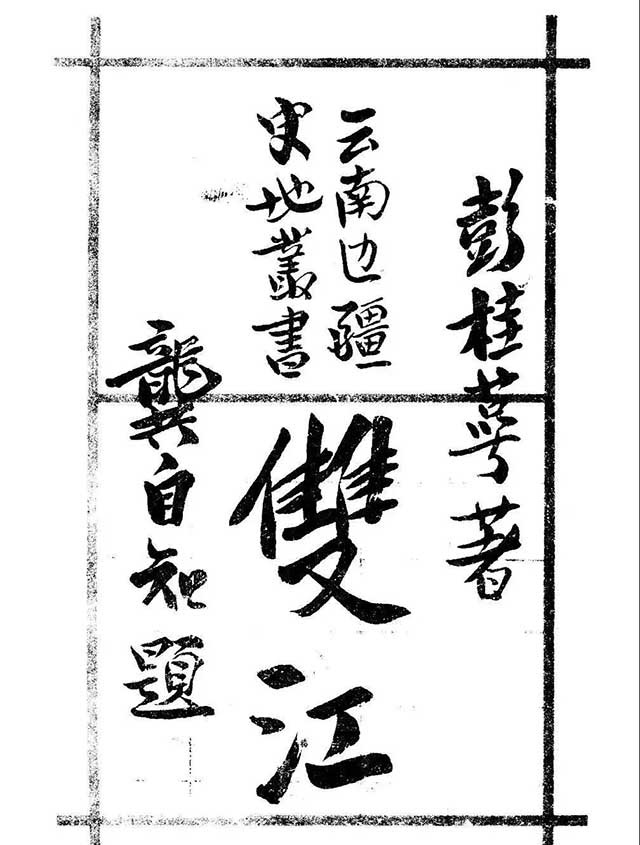 彭桂萼著
云南边疆
史地叢書
雙江
龔自知題